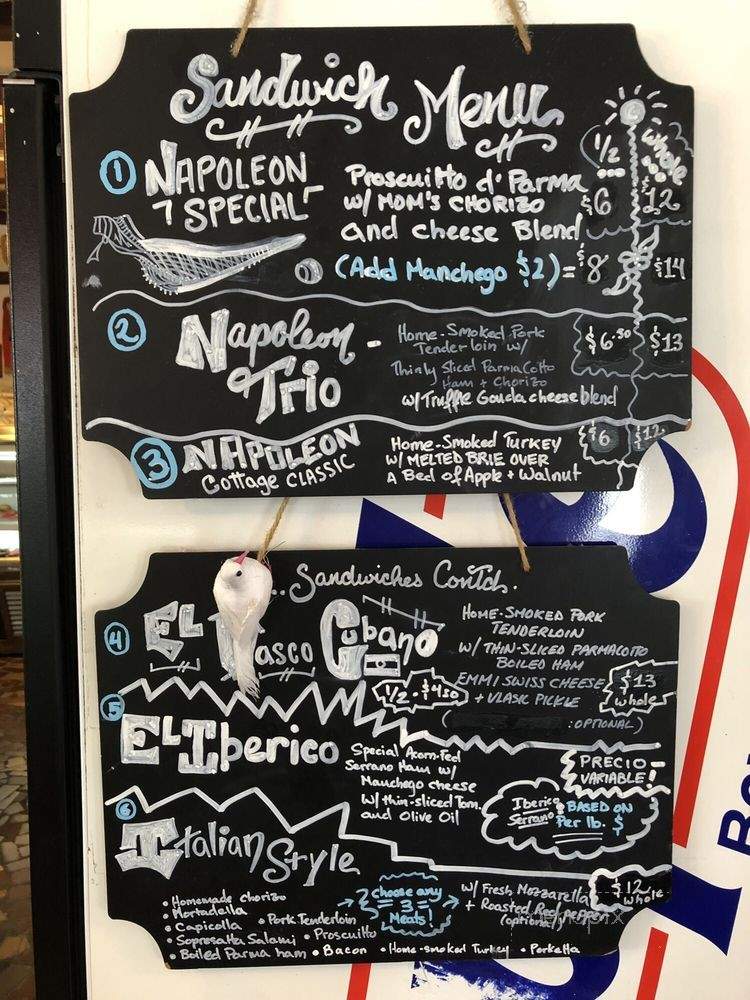 Sandwich Menu
1/2 whole
1 NAPOLEON SPECIAL
Proscuitto d' Parma
w/ MOM'S CHORIZO
and cheese Blend
$6 $12
(Add Manchego $2) = $8 $14
2 Napoleon Trio -
Home-Smoked Pork
Tenderloin w/
Thinly Sliced ParmaCotto
Ham + Chorizo
w/Truffle Gouda cheese blend
$6.50 $13
3 NAPOLEON
Cottage CLASSIC
Home-Smoked Turkey
W/ MELTED BRIE OVER
A Bed of Apple + Walnut
$6 $12
...Sandwiches Contd.
4 EL asco Cubano
HOME-SMOKED PORK
TENDERLOIN
W/ THIN-SLICED PARMACOTTO
BOILED HAM
EMMI SWISS CHEESE
+ VLASIC PICKLE
( :OPTIONAL)
1/2 - $
$13
whole
5 El Iberico
Special Acorn-Fed
Serrano Ham w/
Manchego cheese
w/ thin-sliced Tom.
and Olive Oil
PRECIO
VARIABLE!
Iberico
Serrano
BASED ON
Per lb. $
6 Italian Style
• Homemade chorizo
• Mortadella
• Capicolla
• Sopressatta Salami
• Boiled Parma ham
• Pork Tenderloin
• Proscuitto
• Bacon
• Home-smoked Turkey
• Porketta
choose any
3
Meats!
w/ Fresh Mozzarella
+ Roasted Red PEPPER
(optional)
$12
whole